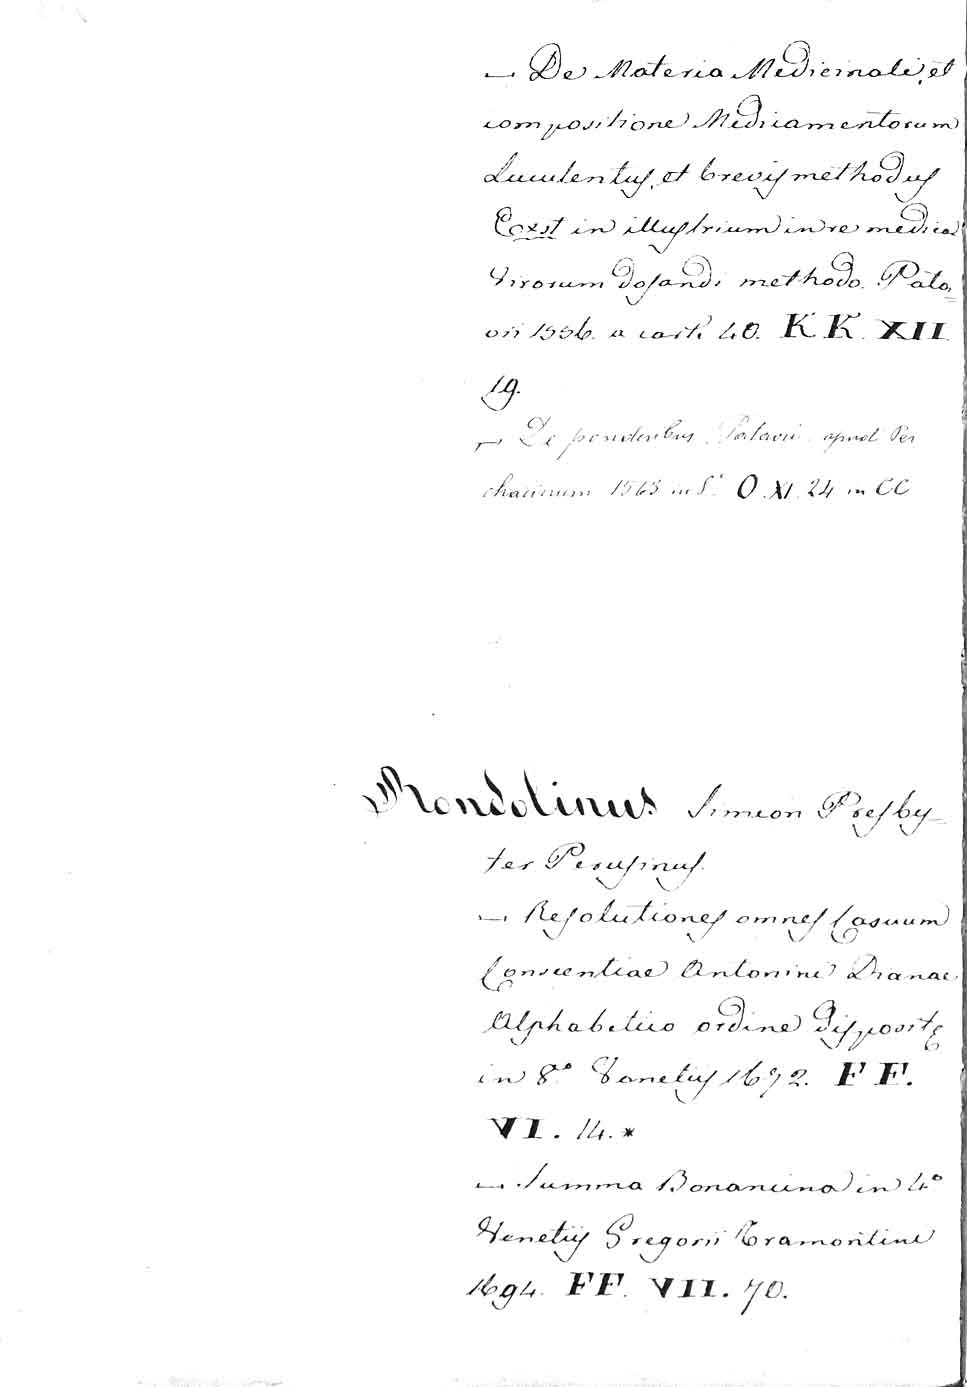 — De Materia Medicinali, et
compositione Medicamentorum
Luculentus, et brevis methodus
Exst in illustrium in re medica
Virorum dosandi methodo. Pata-
vii 1556. a cart. 40. KK. XII
19.
— De ponderibus Patavii apud Per
chacinum 1563 in 8.° O. XI. 24 in CC
Rondolinus Simeon Presby-
ter Perusinus.
— Resolutiones omnes Casuum
Conscientiae Antonini Dianae
Alphabetico ordine disposite
in 8.° Venetiis 1692. FF.
VI. 14. *
— Summa Bonancina in 4°
Venetiis Gregorii Tramontini
1694. FF. VII. 70.